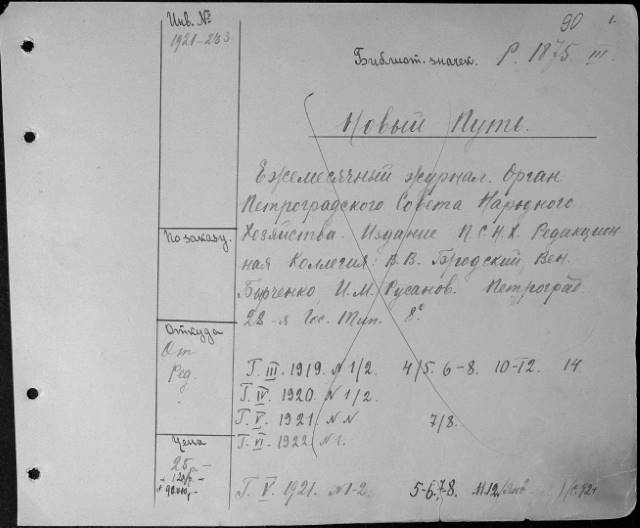 90
Инв. №
1921-233
Библиот. значек. Р. 1875 III.
Новый Путь.
Ежемесячный журнал. Орган
Петроградского Совета Народного
Хозяйства. Издание П С Н Х. Редакцион
ная Коллегия: В. В. Бродский, Вен.
И. М. Русанов. Петроград.
28-я Гос. Тип. 8°
По заказу.
Откуда
От
Ред.
Г. III. 1919. N 1/2. 4/5. 6-8. 10-12. 14.
Г. IV. 1920. N 1/2.
Г. V. 1921. N N 7/8.
Г. VI. 1922. N 1.
Цена
25 р. -
Г. V. 1921. N 1-2. 5-6. 7-8.